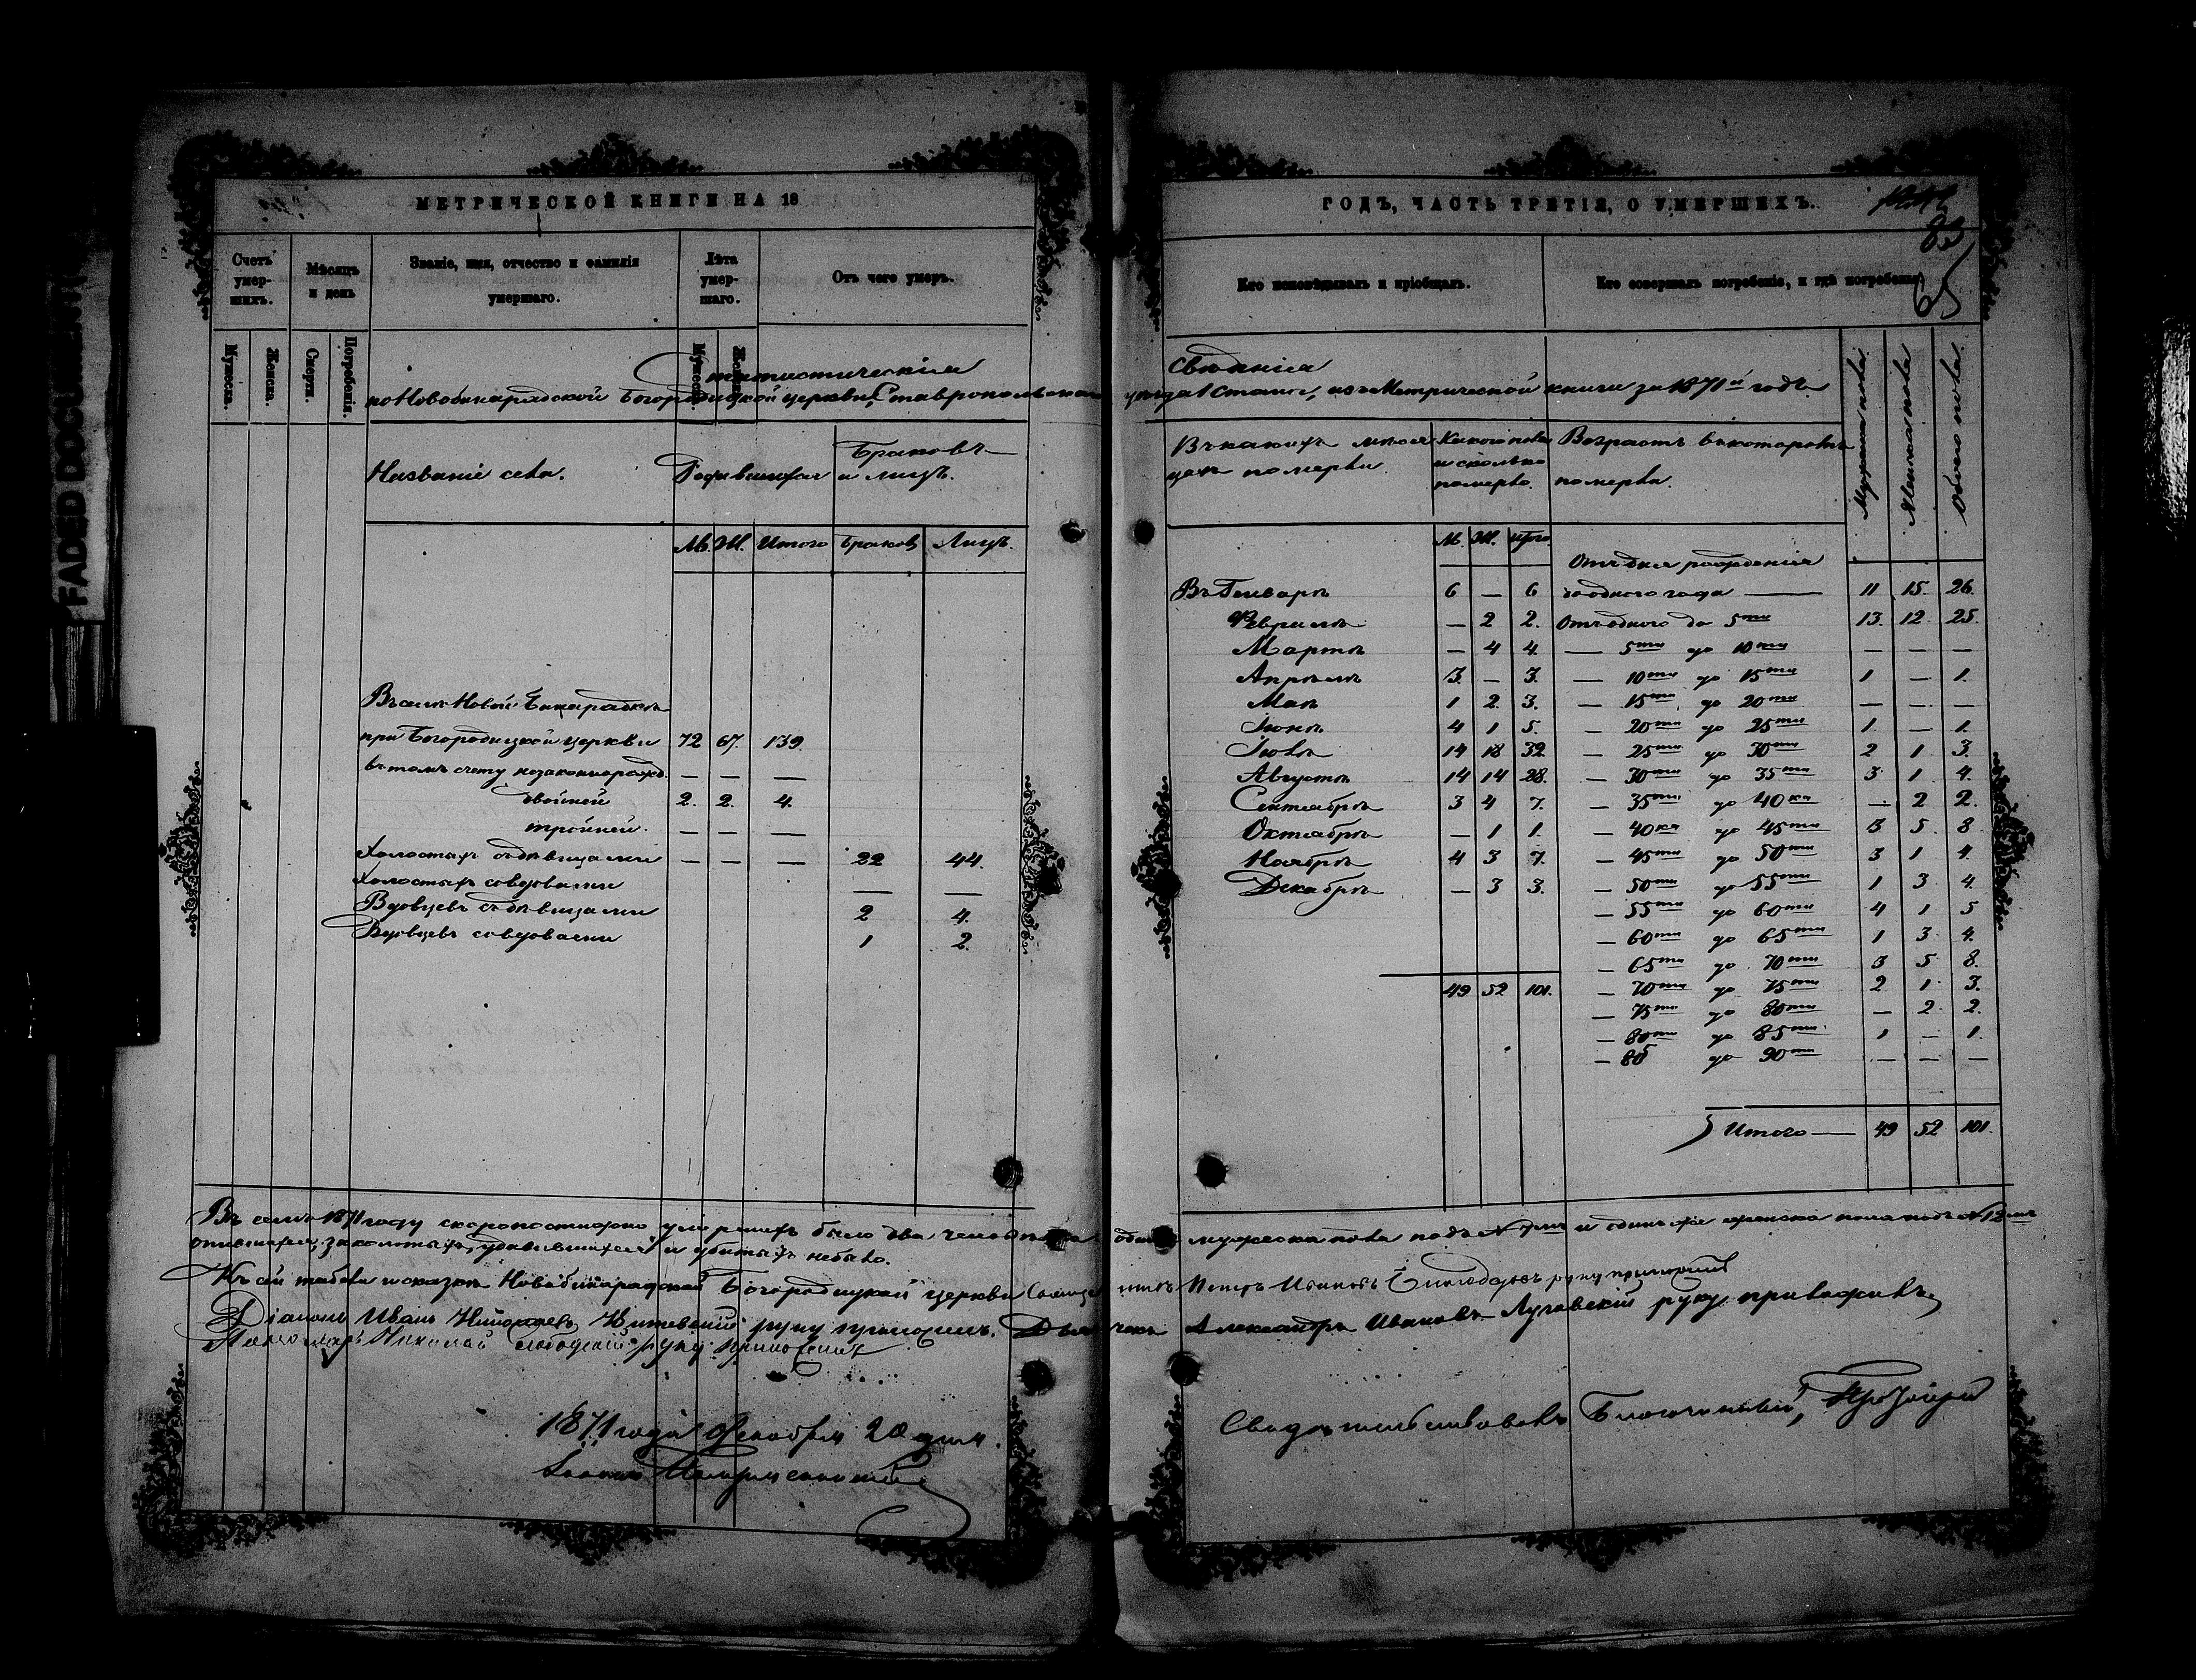 FADED DOCUMENT
МЕТРИЧЕСКОЙ КНИГИ НА 18
Счетъ умер-шихъ.
Мѣсяцъ и день
Званіе, имя, отчество и фамилія умершаго.
Лѣта умер-шаго.
Отъ чего умеръ.
Мужеска.
Женска.
Смерти.
Погребенія.
Мужеска.
Женска.
Статистическія
по Новобинарадской Богородицкой церкви, Ставропольскаго
Названіе села.
Родившихся
Браковъ и лицъ.
М. Ж. Итого Браковъ Лицъ.
Въ селѣ Новой Бинарадкѣ
при Богородицкой церкви 72 67. 139.
въ томъ счету незаконнорожд. — — —
двойней 2. 2. 4.
тройней. — — —
Холостыхъ съ дѣвицами — — — 22 44.
Холостыхъ со вдовами — —
Вдовцевъ съ дѣвицами 2 4.
Вдовцевъ со вдовами 1 2.
ГОДЪ, ЧАСТЬ ТРЕТІЯ, О УМЕРШИХЪ.
83
65
Кто исповѣдывалъ и пріобщалъ.
Кто совершалъ погребеніе, и гдѣ погребены
Свѣдѣнія
уѣзда 1 Стана, изъ Метрической книги за 1871й годъ.
Въ какихъ мѣся-
цахъ померли.
Какого пола
и сколько
померло.
Возрастъ въ которомъ
померли.
Мужска пола.
Женска пола
Обоего пола.
М. Ж. итого.
Отъ дня рожденія
Въ Генварѣ 6 — 6 до одного года — 11 15. 26.
Февралѣ — 2 2. Отъ одного до 5ти 13. 12. 25.
Мартѣ — 4 4. — 5ти до 10ти — — —
Апрѣлѣ 3. — 3. — 10ти до 15ти 1 — 1.
Маѣ 1 2. 3. — 15ти до 20ти — — —
Іюнѣ 4 1 5. — 20ти до 25ти 1 — 1.
Іюлѣ 14 18 32 — 25ти до 30ти 2 1 3.
Августѣ 14 14 28. — 30ти до 35ти 3 1 4.
Сентябрѣ 3 4 7. — 35ти до 40ка — 2 2.
Октябрѣ — 1 1. — 40ка до 45ти 3 5. 8
Ноябрѣ 4 3 7. — 45ти до 50ти 3 1 4.
Декабрѣ — 3 3. — 50ти до 55ти 1 3 4.
— 55ти до 60ти 4 1 5
— 60ти до 65ти 1 3. 4.
— 65ти до 70ти 3 5 8.
49 52 101. — 70ти до 75ти 2 1. 3.
— 75ти до 80ти — 2. 2.
— 80ти до 85ти 1 — 1.
— 85 до 90ти — — —
Итого — 49 52 101.
Въ семъ 1871 году скоропостижно умершихъ было два человѣка одинъ мужеска пола подъ № 7мъ и одинъ же женска пола подъ № 12мъ
опившихся, заколотыхъ, удавившихся и убитыхъ небыло.
Къ сей табели и сказкѣ Новобинарадской Богородицкой церкви Священникъ Петръ Ивановъ руку приложилъ
Діаконъ Иванъ руку приложилъ. Дьячекъ Александръ Ивановъ Луговскій руку приложилъ.
Пономарь Николай Слободскій руку приложилъ
1871 года Декабря 20 дня.
Свидѣтельствовалъ Благочинный, Протоіерей
Іоаннъ